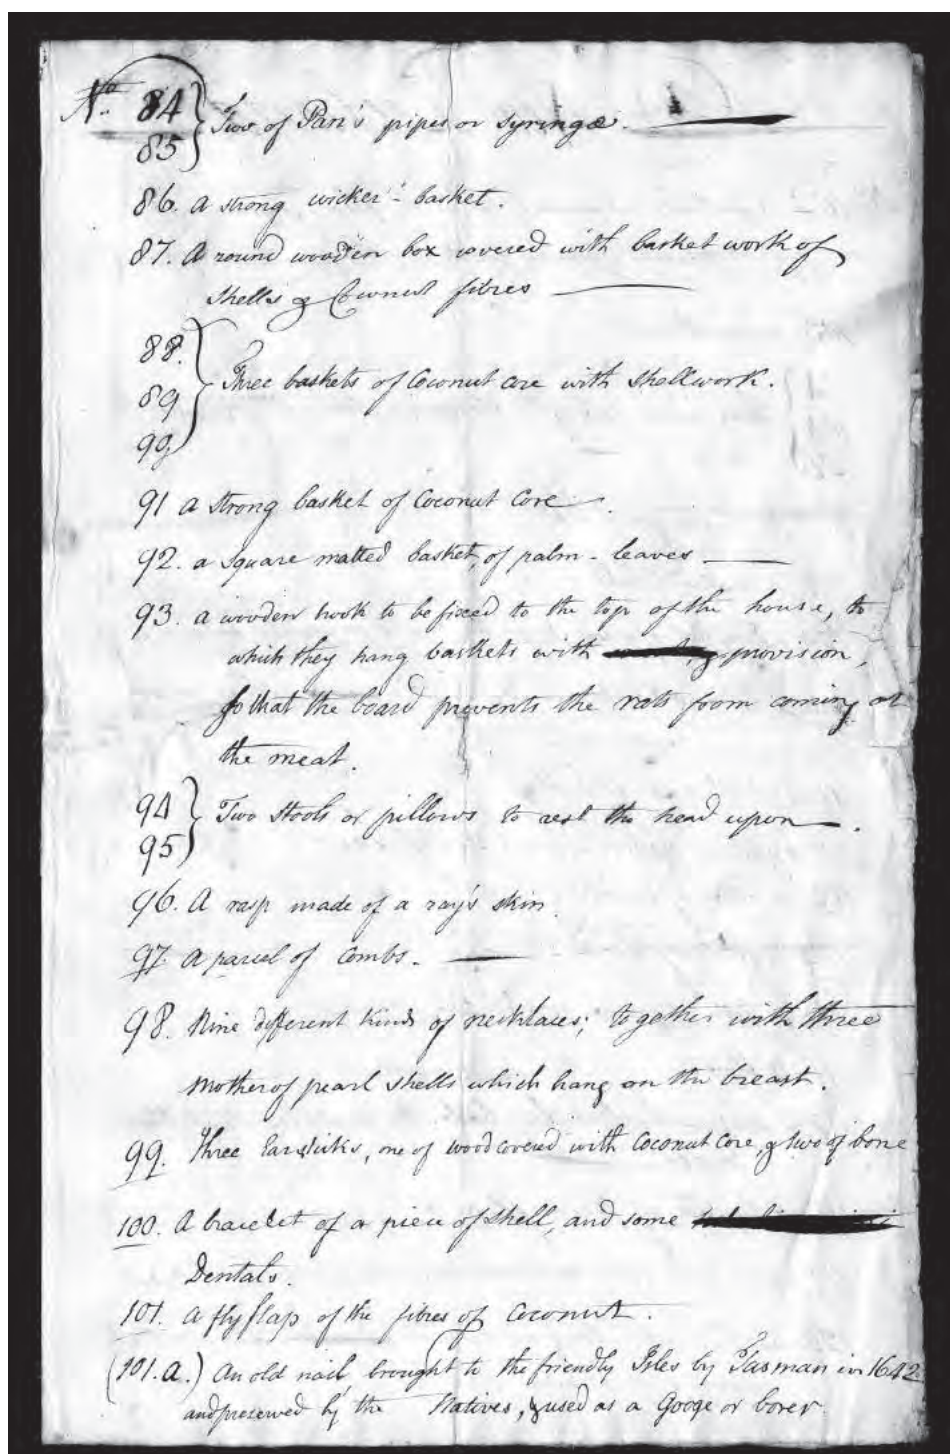 No. 84
85 } Two of Pan's pipes or syringæ.
86. A strong wicker-basket.
87. A round wooden box covered with basket work of
shells & Coconut fibres
88.
89
90 } Three baskets of Coconut core with shellwork.
91 a strong basket of Coconut Core.
92. a square matted basket, of palm-leaves
93. a wooden hook to be fixed to the top of the house, to
which they hang baskets with provision,
so that the board prevents the rats from coming at
the meat.
94
95 } Two stools or pillows to rest the head upon.
96. A rasp made of a ray's skin.
97. A parcel of combs.
98. Nine different kinds of necklaces; together with three
Mother of pearl shells which hang on the breast.
99. Three Earsticks, one of wood covered with Coconut Core, & two of bone
100. A bracelet of a piece of shell, and some
Dentals.
101. A fly flap of the fibres of Coconut.
(101.a.) An old nail brought to the friendly Isles by Tasman in 1642.
and preserved by the Natives, & used as a Googe or borer